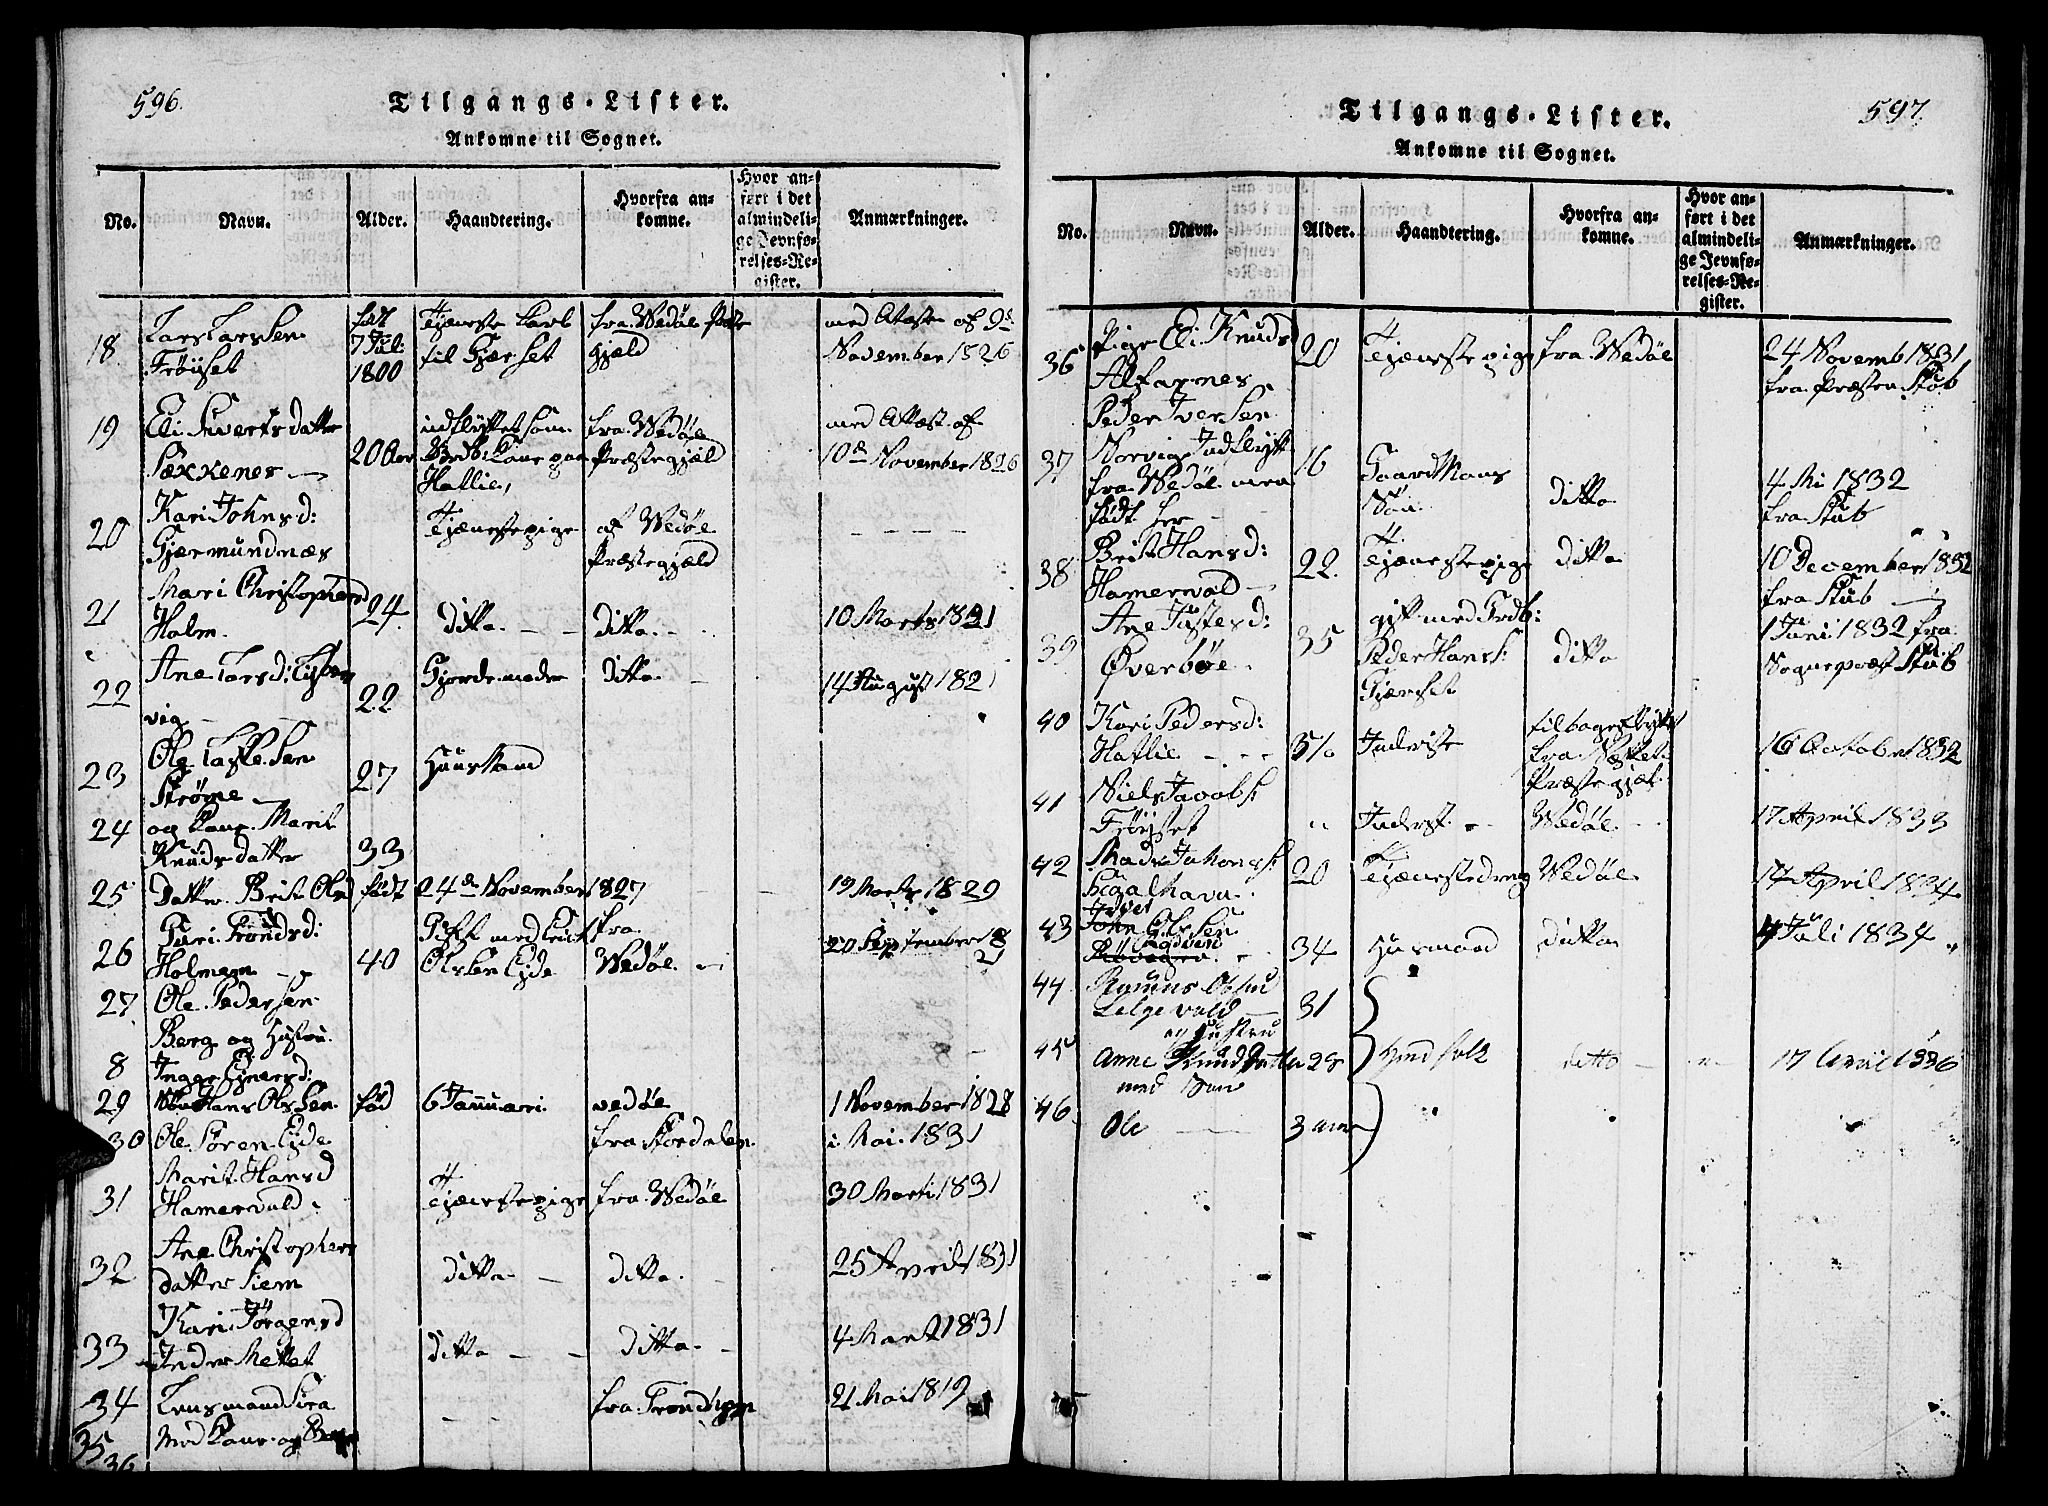 596.
Tilgangs-Lister.
Ankomne til Sognet.
No. Navn. Alder. Haandtering. Hvorfra ankomne. Hvor anført i det almindelige Jevnførelses-Register. Anmærkninger.
18 Lars Larssen Frøiset født 7 Juli 1800 Tjeneste Karl til Gjerset fra Wedøe Præstegjæld med Attest af 9de November 1826
19 Eli Siverts datter Sækkenes 20 Aar indflyttet som Kone paa Hatlie, fra Wedøe Præstegjæld med Attest af 10de November 1826
20 Kari Johnsd: Gjermundnæs Tjenestepige af Wedøe Præstegjæld
21 Mari Christophersd Holm 24 ditto ditto 10 Marts 1821
22 Ane Larsd: vig 22 ditto 14 August 1821
23 Ole Lasse Sen Strøme 27 Huusmand
24 og Kone Marit Knudsdatter 33
25 Datter Brit Olsd født 24de November 1827 19 Marts 1829
26 Guri Trondsd: Holmem 40 Gift med Erick Olsen Eide fra Wedøe 20 September 18 21
27 Ole Pedersen Berg og Hustru
8 Inger Ejnersd:
29 Søn Hans Olssen fød 6 Januari vedøe 1 November 1828
30 Ole Søren Eide fra Stordalen i Mai 1831
31 Marit Hansd Hamervold Tjenestepige fra Wedøe 30 Marti 1831
32 Ane Christophers datter Siem ditto ditto 25 April 1831
33 Kari Jørgensd Indermettet ditto ditto 4 Mart 1831
34 Lensmand Sira fra Trondhjem 21 Mai 1819
35 Med Kone og
36
Tilgangs-Lister.
597.
Ankomne til Sognet.
No. Navn. Alder. Haandtering. Hvorfra ankomne. Hvor anført i det almindelige Jevnførelses-Register. Anmærkninger.
36 Pige Eli Knudsd Alfarnes 20 Tjenestepige fra Wedøe 24 Novemb 1831 fra Præsten Stub
37 Peder Iversen Norvig Indflytt fra Wedøe men født her 16 Gaardmans Søn ditto 4 Mi 1832 fra Stub
38 Brit Hansd: Hamervold 22 Tjenestepige ditto 10 December 1832 fra Stub
39 Ane Justesd: Øverbøe 35 gift med Peder Hans: Gjerset ditto 1 Juni 1832 fra Sognepræst Stub
40 Kari Pedersd: Hatlie Inderste tilbageflyttet fra Nesset Præstegjel 16 October 1832
41 Niels Jacobs: Frøyset Inderst Wedøe 17 April 1833
42 Mads Johans: 20 Tjenestedreng Wedøe 14 April 1834
43 John Olssen 34 Husmand ditto 4 Juli 1834
44 Rasmus Olsen Helgevold 31
45 og Hustru Anne Knudsdatter 28 Huusfolk detto 17 April 1836
46 med Søn Ole 3 Aar